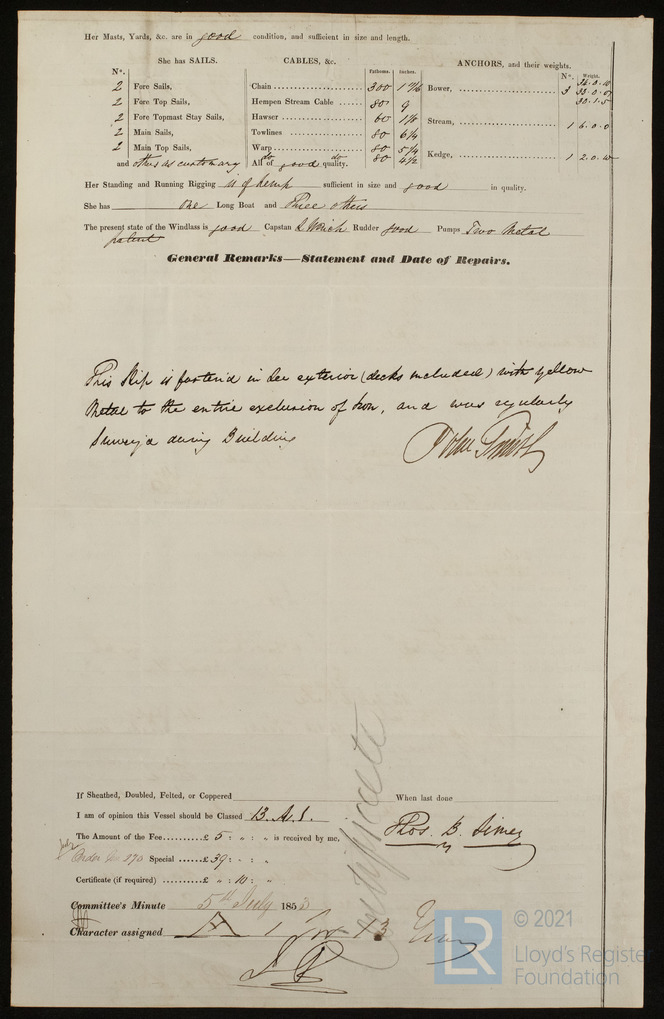 Her Masts, Yards, &c. are in good condition, and sufficient in size and length.
She has SAILS. CABLES, &c. ANCHORS, and their weights.
N°. Fathoms. Inches. N°. Weight.
2 Fore Sails, Chain 300 1 7/16 Bower, 3
2 Fore Top Sails, Hempen Stream Cable 80 9 30.1.5
2 Fore Topmast Stay Sails, Hawser 60
2 Main Sails, Towlines 80 6 1/4 Stream, 1 6.0.0
2 Main Top Sails, Warp 80 5 1/4
and others as customary All of good quality. 80 4 1/2 Kedge, 1 2.0.
Her Standing and Running Rigging is of hemp sufficient in size and good in quality.
She has one Long Boat and Three others
The present state of the Windlass is good Capstan & Winch Rudder good Pumps Two Metal
patent
General Remarks—Statement and Date of Repairs.
This Ship is fastend in her exterior (decks included) with yellow
Metal to the entire exclusion of Iron, and was regularly
Survey'd during Building
John Smith
If Sheathed, Doubled, Felted, or Coppered When last done
I am of opinion this Vessel should be Classed 13. A. 1.
The Amount of the Fee £ 5 : „ : „ is received by me, Thos. B. Simey
Order Special £ 39 : „ : „
Certificate (if required) £ „ : 10 : „
Certificate
Committee's Minute 5th July 1853
Character assigned A 1 for 13
© 2021
LR
Lloyd's Register
Foundation